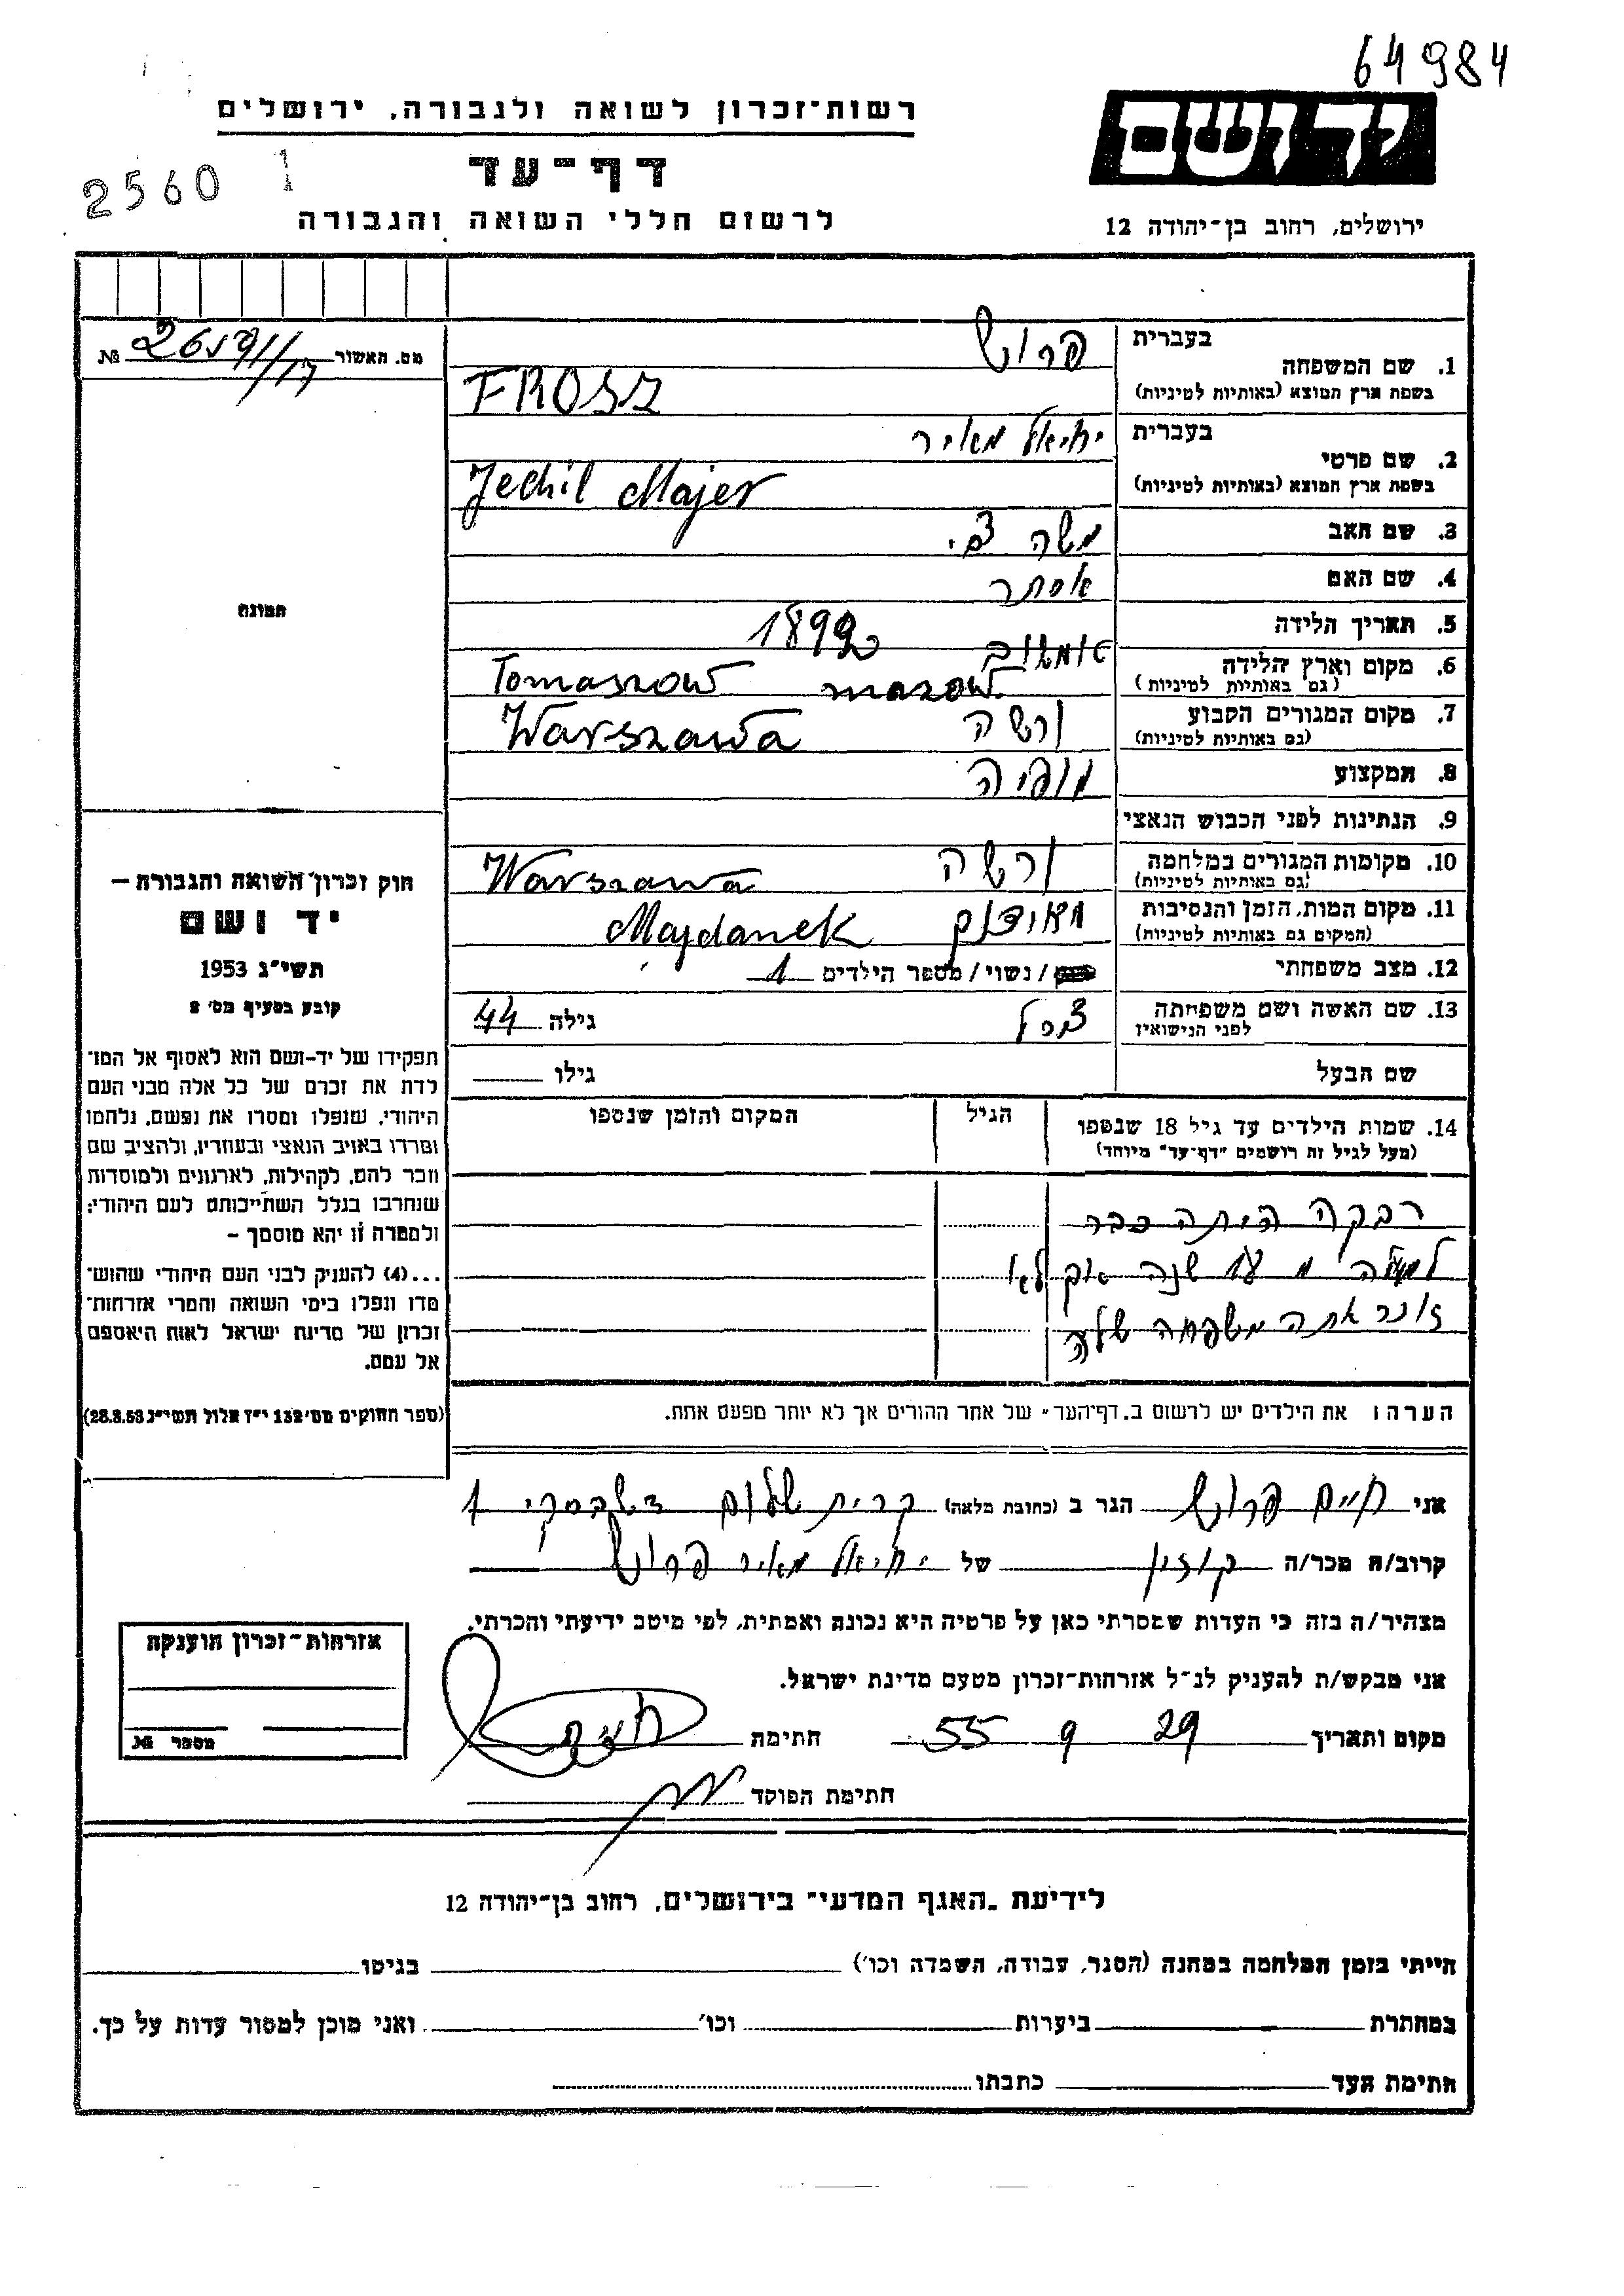 64984
רשות־זכרון לשואה ולגבורה, ירושלים
יד ושם
דף־עד
2560 1
לרשום חללי השואה והגבורה
ירושלים, רחוב בן־יהודה 12
מס. תאשור №
1. שם המשפחה
בעברית פרוש
בשפת ארץ המוצא (באותיות לטיניות) FROSZ
2. שם פרטי
בעברית יחיאל מאיר
בשפת ארץ המוצא (באותיות לטיניות) Jechil Majer
3. שם האב משה צבי
4. שם האם אסתר
5. תאריך הלידה
6. מקום וארץ הלידה
(גם באותיות לטיניות) Tomaszow mazow.
7. מקום המגורים הקבוע ורשה Warszawa
(גם באותיות לטיניות)
8. המקצוע אופיה
9. הנתינות לפני הכבוש הנאצי
10. מקומות המגורים במלחמה ורשה Warszawa
(גם באותיות לטיניות)
11. מקום המות, הזמן והנסיבות Majdanek
(המקום גם באותיות לטיניות)
12. מצב משפחתי / נשוי / מספר הילדים 1
13. שם האשה ושם משפחתה גילה 44
לפני הנישואין
שם הבעל גילו
14. שמות הילדים עד גיל 18 שנספו הגיל המקום והזמן שנספו
(מעל לגיל זה רושמים "דף־עד" מיוחד)
רבקה היתה כבר
למעלה מ 18 שנה אך לא
זוכר את ה משפחה שלה
הערה: את הילדים יש לרשום ב„דף־העד" של אחד ההורים אך לא יותר מפעם אחת.
תמונה
חוק זכרון השואה והגבורה —
יד ושם
תשי"ג 1953
קובע בסעיף מס' 2
תפקידו של יד-ושם הוא לאסוף אל המו־
לדת את זכרם של כל אלה מבני העם
היהודי, שנפלו ומסרו את נפשם, נלחמו
ומרדו באויב הנאצי ובעוזריו, ולהציב שם
וזכר להם, לקהילות, לארגונים ולמוסדות
שנחרבו בגלל השתייכותם לעם היהודי;
ולמטרה זו יהא מוסמך –
...(4) להעניק לבני העם היהודי שהוש־
מדו ונפלו בימי השואה והמרי אזרחות־
זכרון של מדינת ישראל לאות היאספם
אל עמם.
(ספר החוקים מס' 132 י"ז אלול תשי"ג 28.8.53)
אני חיים פרוש הגר ב (כתובת מלאה) קרית שלום 1
קרוב/ה מכר/ה קוזין של יחיאל מאיר פרוש
מצהיר/ה בזה כי העדות שמסרתי כאן על פרטיה היא נכונה ואמתית, לפי מיטב ידיעתי והכרתי.
אני מבקש/ת להעניק לנ"ל אזרחות־זכרון מטעם מדינת ישראל.
מקום ותאריך 29 9 55 חתימה
חתימת הפוקד
אזרחות־זכרון הוענקה
מספר №
לידיעת „האגף המדעי" בירושלים, רחוב בן־יהודה 12
הייתי בזמן המלחמה במחנה (הסגר, עבודה, השמדה וכו') בגיטו
במחתרת ביערות וכו' ואני מוכן למסור עדות על כך.
חתימת העד כתבתו